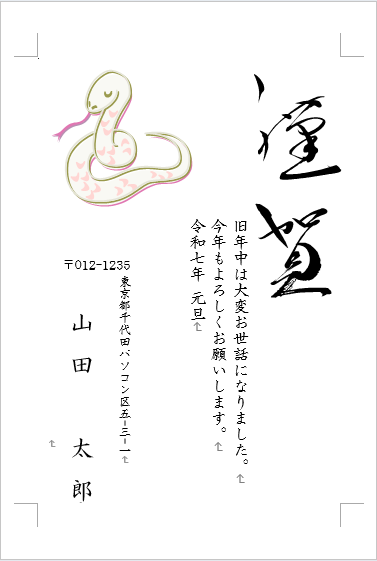 謹賀
旧年中は大変お世話になりました。
今年もよろしくお願いします。
令和七年 元旦
〒012-1235
東京都千代田パソコン区五-三-一
山田 太郎